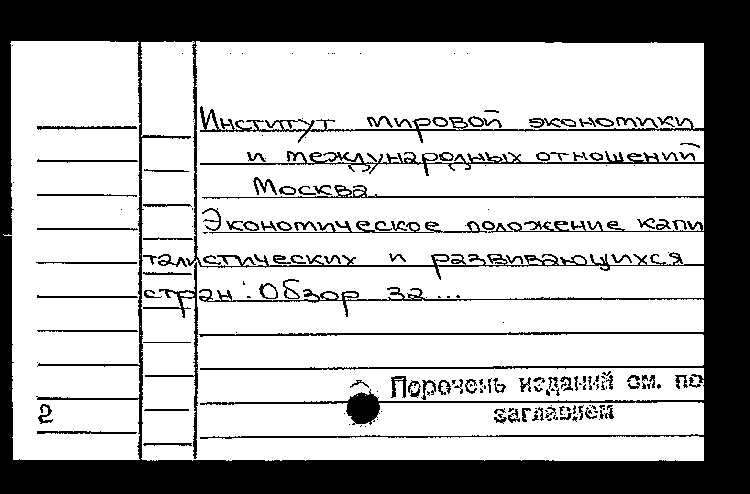 Институт мировой экономики
и международных отношений
Москва.
Экономическое положение капи
талистических и развивающихся
стран: Обзор за...
Перечень изданий см. по
заглавием
2